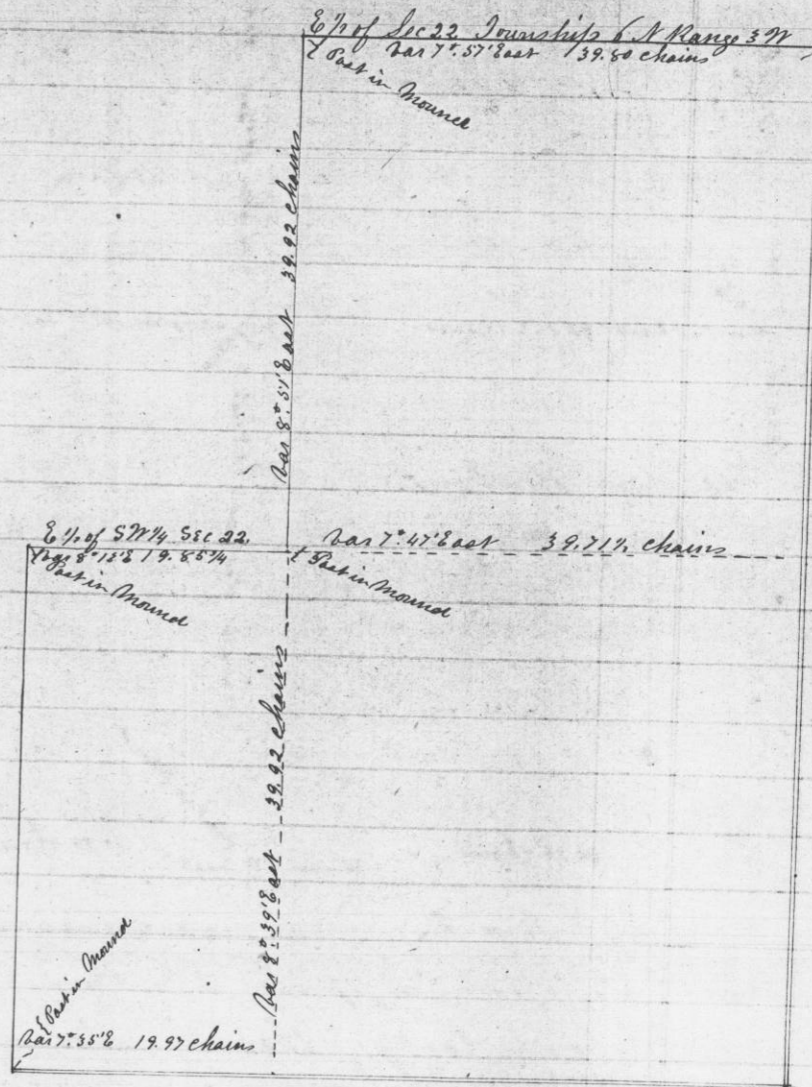 E ½ of Sec 22. Township 6 N Range 3 W
Var 7° 57' East 39.80 chains
Post in Mound
Var 8° 51' East 39.92 chains
E ½ of SW ¼ SEC 22.
Var 8° 12' E 19.85 ¾
Post in Mound
Var 7° 47' East 39.71 ½ chains
Post in Mound
Var 8° 39' East 39.92 chains
Post in Mound
Var 7° 35' E 19.97 chains